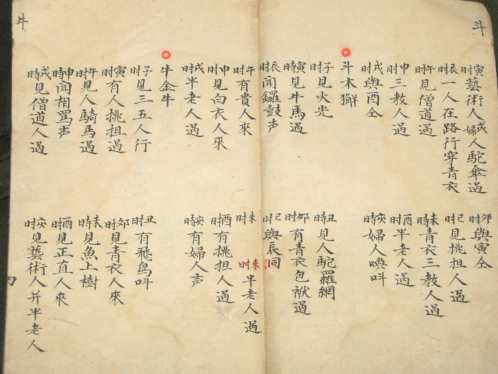 斗
寅时藝術人或婦人駝傘過
辰时一人在路行穿青衣
午时見僧道過
申时三教人過
戌时與酉仝
斗木獬
子时見火光
寅时見牛馬過
辰时聞鑼鼓声
卯时與寅仝
巳时見挑担人過
未时青衣三教人過
酉时半老人過
亥时婦人喚叫
丑时見人駝羅網
卯时有青衣包袱過
巳时與辰同
牛
午时有貴人來
申时見白衣人來
戌时半老人過
牛金牛
子时見三五人行
寅时有人挑担過
午时見人騎馬過
申時聞相罵声
戌時見僧道人過
未时半老人過
酉时有挑担人過
亥时有婦人声
丑时有飛鳥叫
卯时見青衣人來
未时見魚上樹
酉时見正直人來
亥时見藝術人并半老人